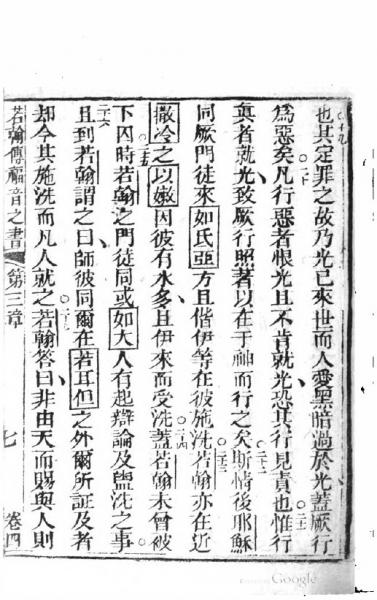 也其定罪之故乃光已來世而人愛黑暗過於光蓋厥行
爲惡矣凡行惡者恨光且不肯就光恐其行見責也惟行
眞者就光致厥行照著以在于神而行之矣斯情後耶穌
同厥門徒來如氏亞方且偕伊等在彼施洗若翰亦在近
撒冷之以嫩因彼有水多且伊來而受洗蓋若翰未曾被
下囚時若翰之門徒同或如大人有起辯論及盥洗之事
且到若翰謂之曰師彼同爾在若耳但之外爾所証及者
却今其施洗而凡人就之若翰答曰非由天而賜與人則
若翰傳福音之書 第三章 七 卷四
Google